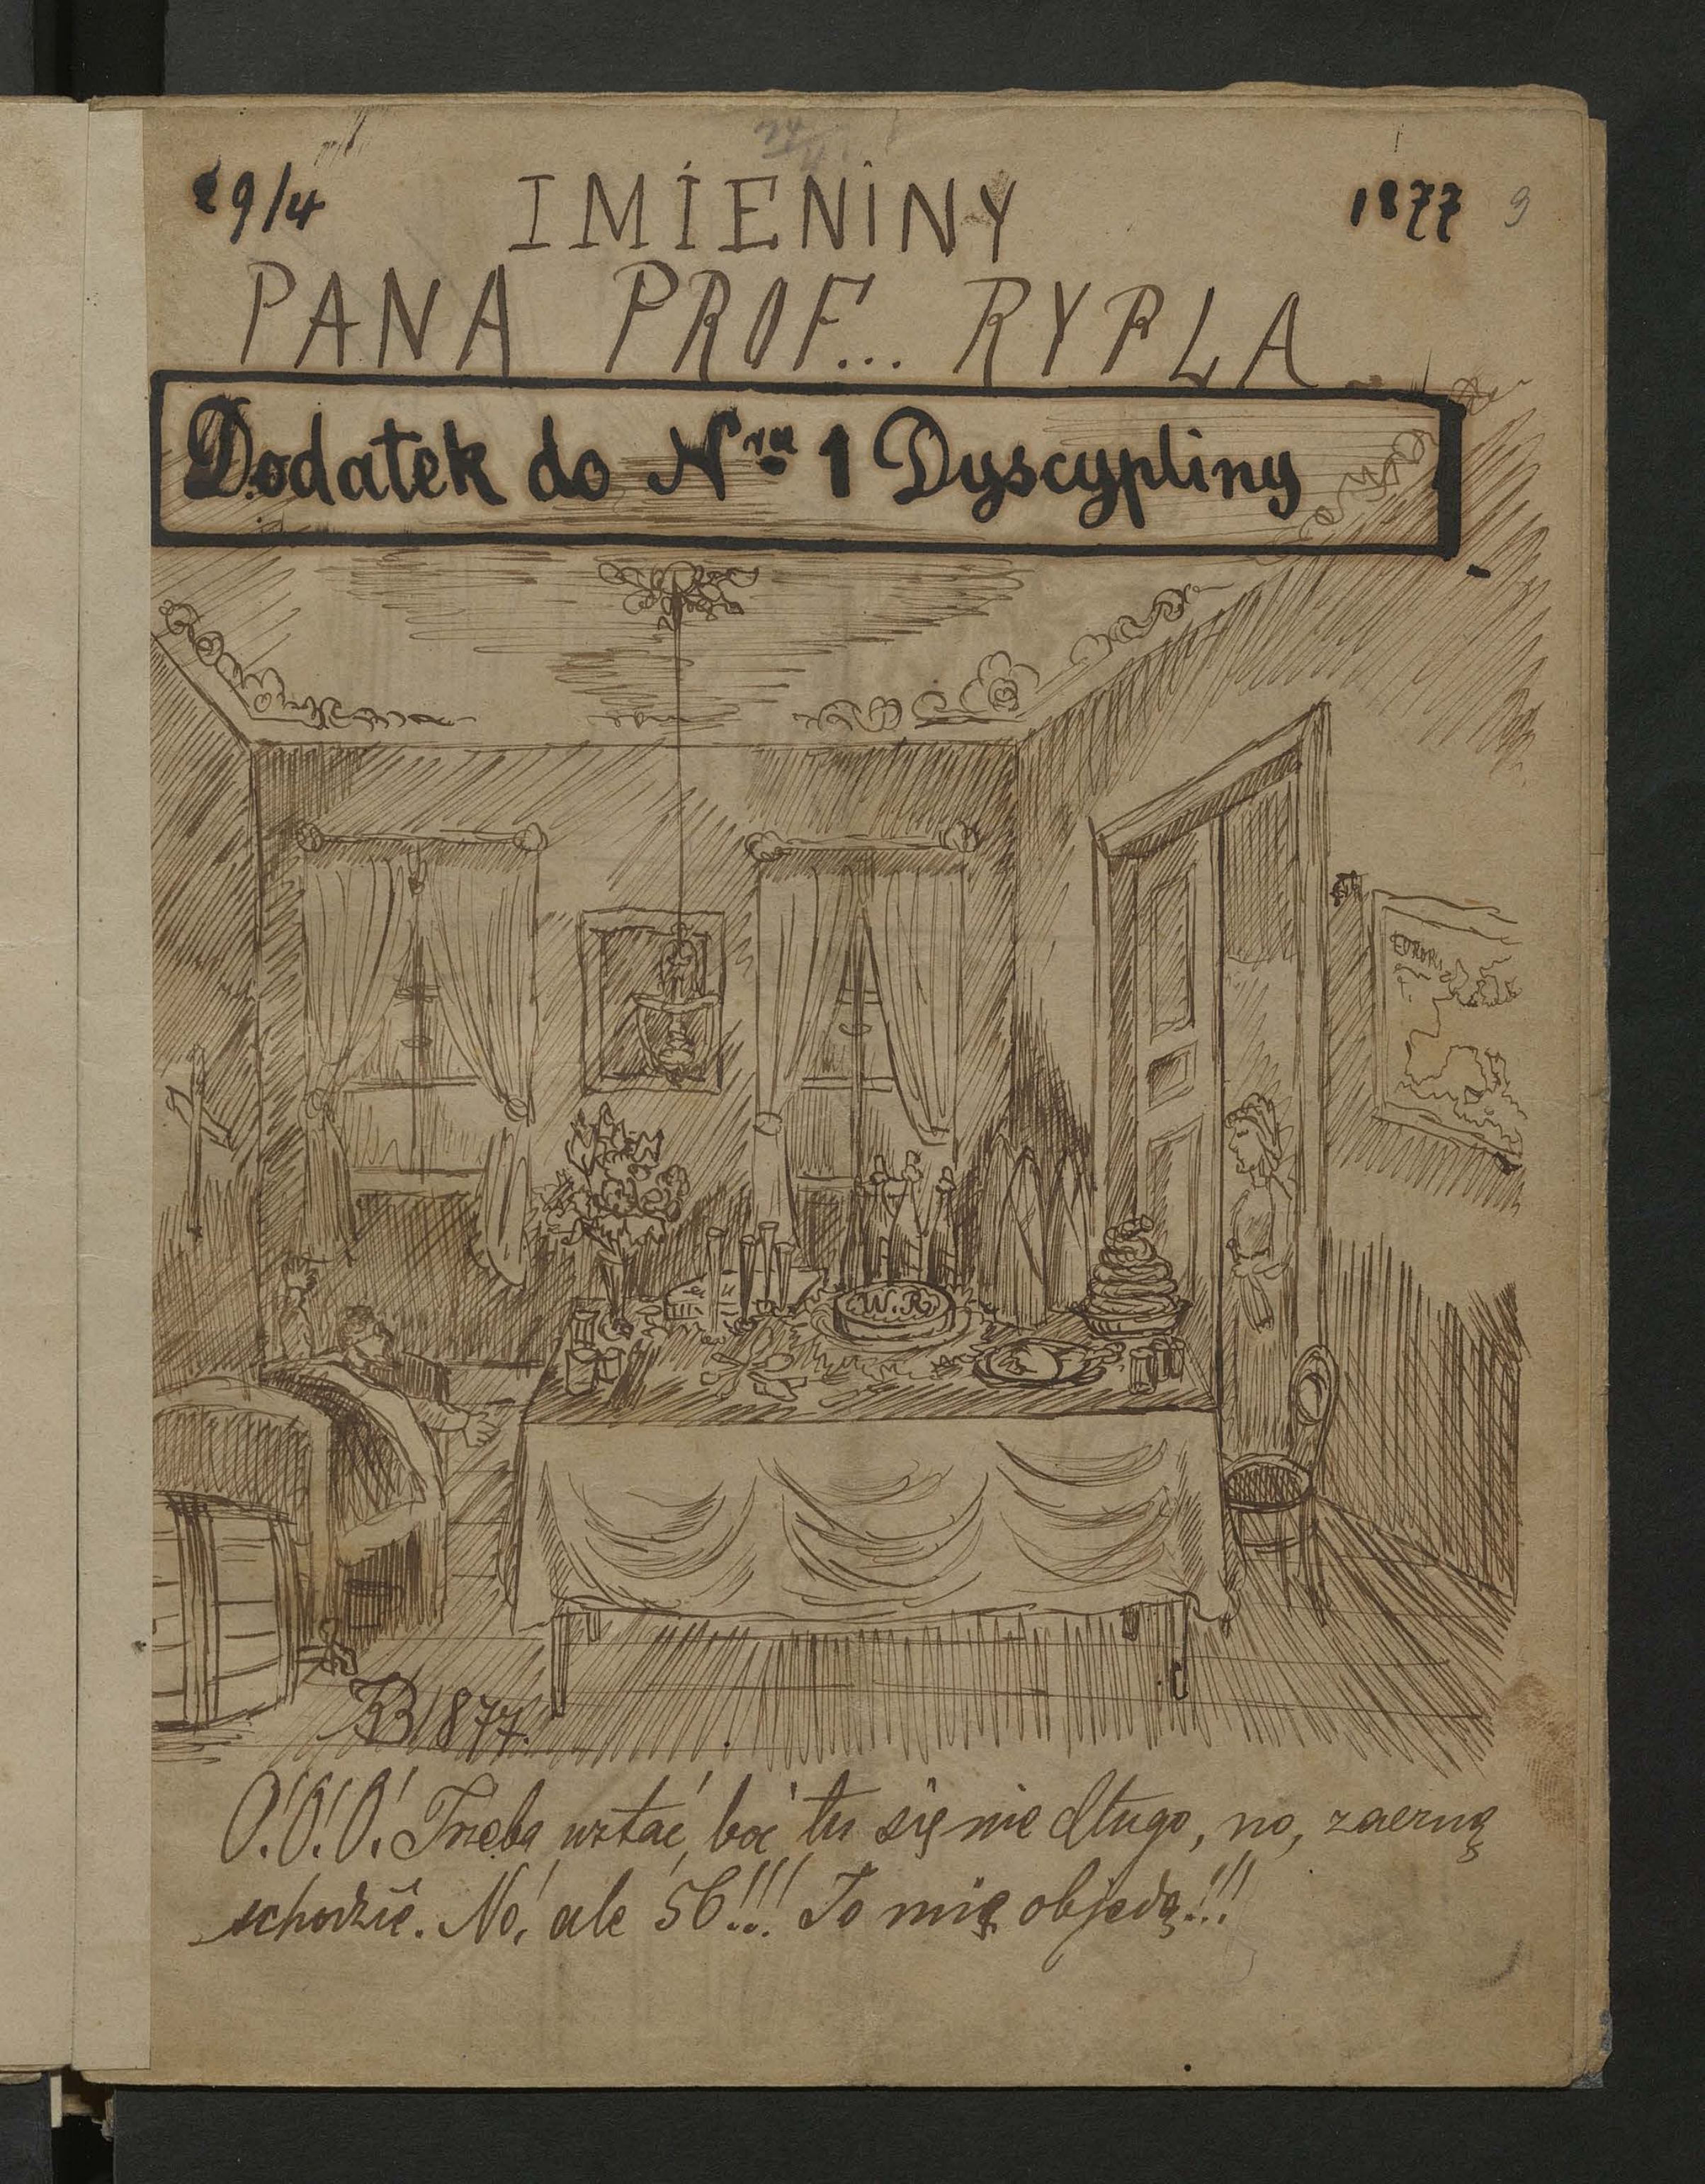 29/4 IMIENINY 1877 9
PANA PROF... RYPLA
Dodatek do Nru 1 Dyscypliny
EUROPA
W.R.
1877.
O! O! O! Trzeba wstać, boć tu się nie długo, no, zaczną
schodzić. No, ale 56!!! To mię objedzą!!!